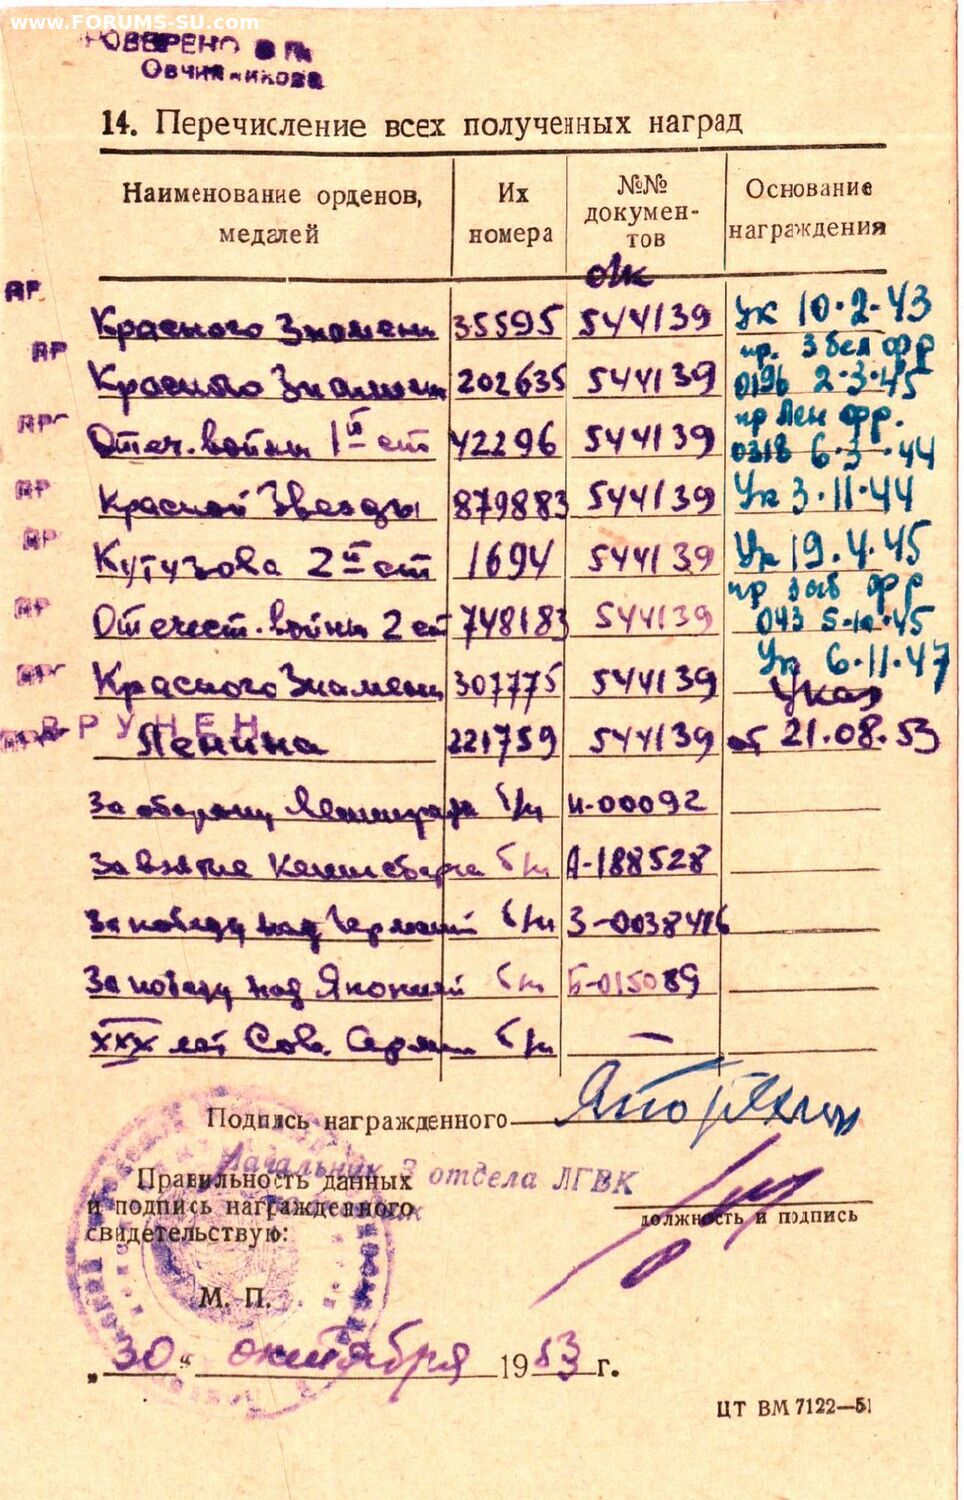 www.FORUMS-SU.com
14. Перечисление всех полученных наград
Наименование орденов, медалей
Их номера
№№ документов
Основание награждения
ок
Красного Знамени 35595 544139 Ук 10·2-43
Красного Знамени 202635 544139 пр. 3 бел фр 0196 2·3·45
Отеч. войны 1й ст 42296 544139 пр Лен фр. 0318 6·3·44
Красной Звезды 879883 544139 Ук 3·11·44
Кутузова 2й ст 1694 544139 Ук 19.4.45
Отечест. войны 2 ст 748183 544139 пр заб фр 043 5·10·45
Красного Знамени 307775 544139 Ук 6·11·47
ВРУЧЕН
Ленина 221759 544139 Указ от 21.08.53
За оборону Ленинграда б/н И-00092
За взятие Кенигсберга б/н А-188528
За победу над Германией б/н З-0038416
За победу над Японией б/н Б-015089
XXX лет Сов. Армии б/н —
Подпись награжденного
Начальник 3 отдела ЛГВК
Правильность данных
и подпись награжденного
свидетельствую:
должность и подпись
М. П.
„30“ октября 1953 г.
ЦТ ВМ 7122—51